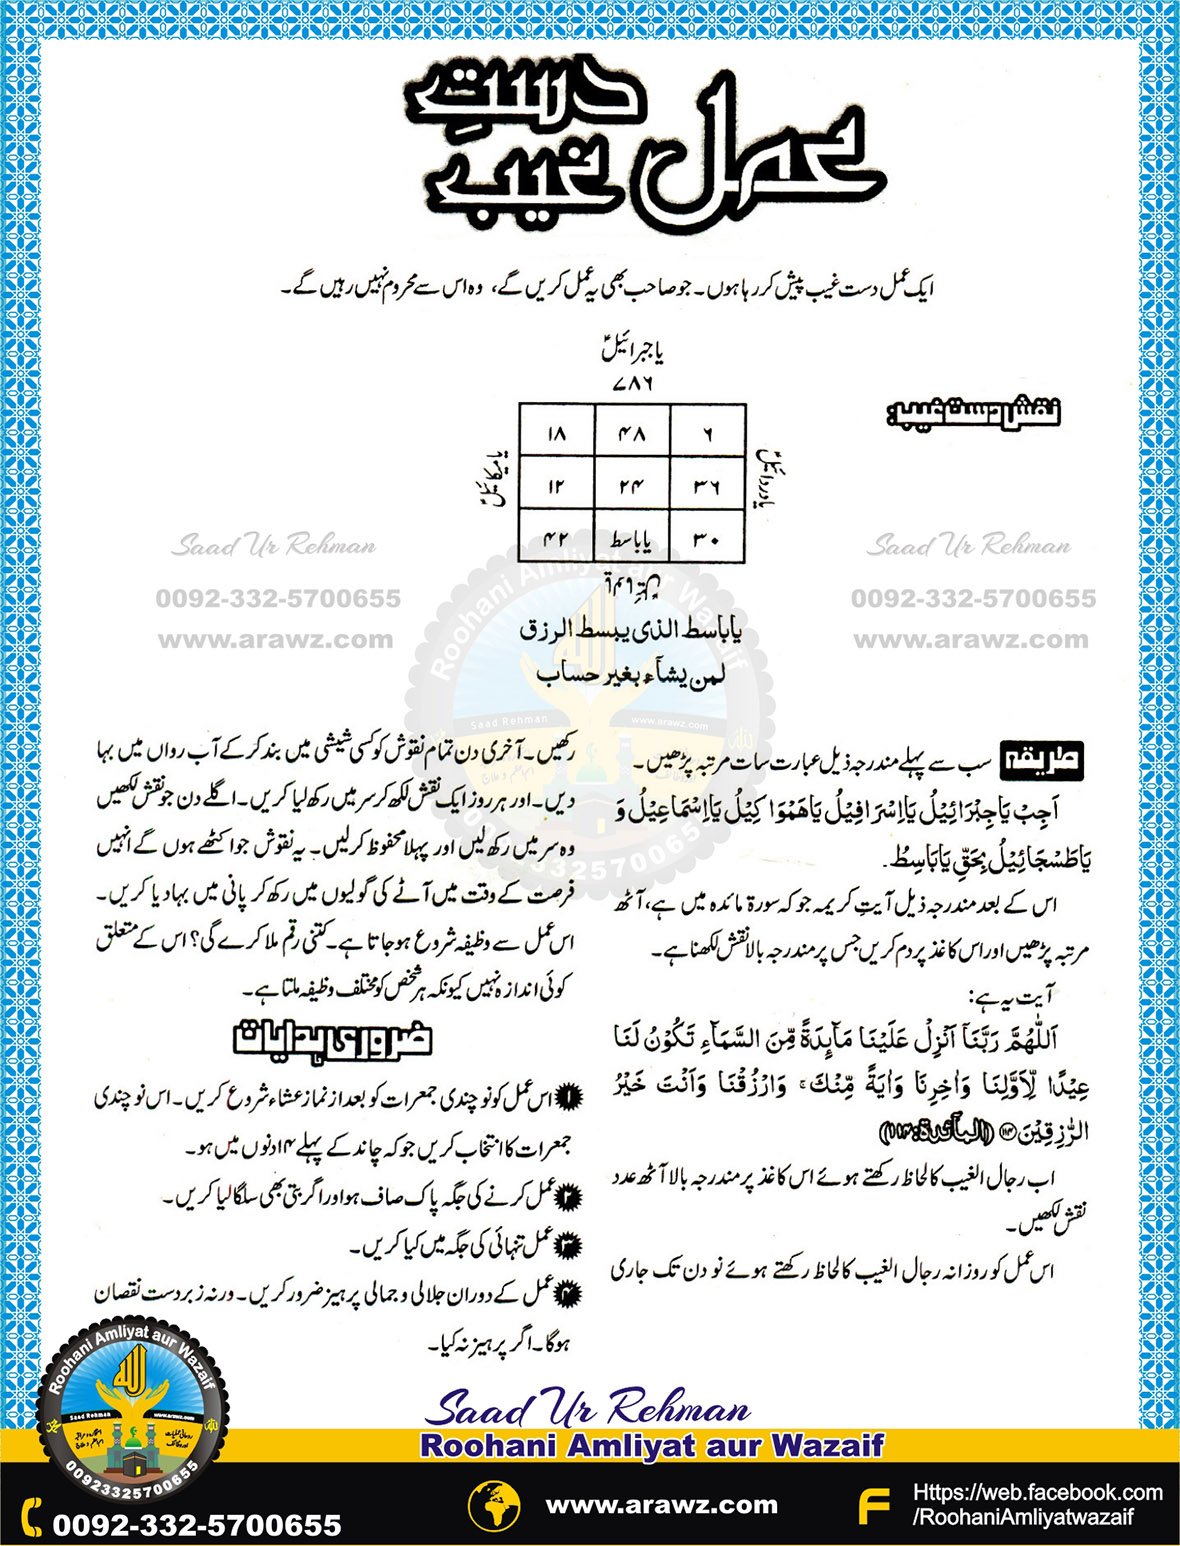 عمل دستِ غیب
ایک عمل دست غیب پیش کر رہا ہوں۔ جو صاحب بھی یہ عمل کریں گے، وہ اس سے محروم نہیں رہیں گے۔
نقش دست غیب:
یا جبرائیلؑ
۷۸۶
۶ ۴۸ ۱۸
۳۶ ۲۴ ۱۲
۳۰ یا باسط ۴۲
یا دردائیلؑ
یا میکائیلؑ
یاباسط الذی یبسط الرزق
لمن یشآء بغیر حساب
Saad Ur Rehman
0092-332-5700655
www.arawz.com
Saad Ur Rehman
0092-332-5700655
www.arawz.com
Roohani Amliyat aur Wazaif
Saad Rehman www.arawz.com
00923325700655
طریقہ سب سے پہلے مندرجہ ذیل عبارت سات مرتبہ پڑھیں۔
اَجِبْ یَاجِبْرَائِیْلُ یَااِسْرَافِیْلُ یَاھَمْوَاکِیْلُ یَااِسْمَاعِیْلُ وَ
یَاطَسْجَائِیْلُ بِحَقِّ یَابَاسِطُ۔
اس کے بعد مندرجہ ذیل آیتِ کریمہ جو کہ سورۃ مائدہ میں ہے، آٹھ
مرتبہ پڑھیں اور اس کاغذ پر دم کریں جس پر مندرجہ بالا نقش لکھنا ہے۔
آیت یہ ہے:
اَللّٰهُمَّ رَبَّنَاۤ اَنْزِلْ عَلَیْنَا مَآىِٕدَةً مِّنَ السَّمَآءِ تَكُوْنُ لَنَا
عِیْدًا لِّاَوَّلِنَا وَاٰخِرِنَا وَاٰیَةً مِّنْكَ ۚ وَارْزُقْنَا وَاَنْتَ خَیْرُ
الرّٰزِقِیْنَ ﴿۱۱۴﴾ (المآئدۃ:۱۱۴)
اب رجال الغیب کا لحاظ رکھتے ہوئے اس کاغذ پر مندرجہ بالا آٹھ عدد
نقش لکھیں۔
اس عمل کو روزانہ رجال الغیب کا لحاظ رکھتے ہوئے نو دن تک جاری
رکھیں۔ آخری دن تمام نقوش کو کسی شیشی میں بند کر کے آب رواں میں بہا
دیں۔ اور ہر روز ایک نقش لکھ کر سر میں رکھ لیا کریں۔ اگلے دن جو نقش لکھیں
وہ سر میں رکھ لیں اور پہلا محفوظ کر لیں۔ یہ نقوش جو اکٹھے ہوں گے انہیں
فرصت کے وقت میں آٹے کی گولیوں میں رکھ کر پانی میں بہا دیا کریں۔
اس عمل سے وظیفہ شروع ہو جاتا ہے۔ کتنی رقم ملا کرے گی؟ اس کے متعلق
کوئی اندازہ نہیں کیونکہ ہر شخص کو مختلف وظیفہ ملتا ہے۔
ضروری ہدایات
۱ اس عمل کو نو چندی جمعرات کو بعد از نماز عشاء شروع کریں۔ اس نو چندی
جمعرات کا انتخاب کریں جو کہ چاند کے پہلے ۱۴ دنوں میں ہو۔
۲ عمل کرنے کی جگہ پاک صاف ہو اور اگر بتی بھی سلگا لیا کریں۔
۳ عمل تنہائی کی جگہ میں کیا کریں۔
۴ عمل کے دوران جلالی و جمالی پرہیز ضرور کریں۔ ورنہ زبردست نقصان
ہو گا۔ اگر پرہیز نہ کیا۔
Roohani Amliyat aur Wazaif
Saad Rehman www.arawz.com
00923325700655
Saad Ur Rehman
Roohani Amliyat aur Wazaif
0092-332-5700655
www.arawz.com
Https://web.facebook.com
/RoohaniAmliyatwazaif